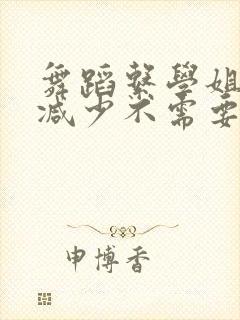 舞蹈繫學姐
減少不需要
申博香